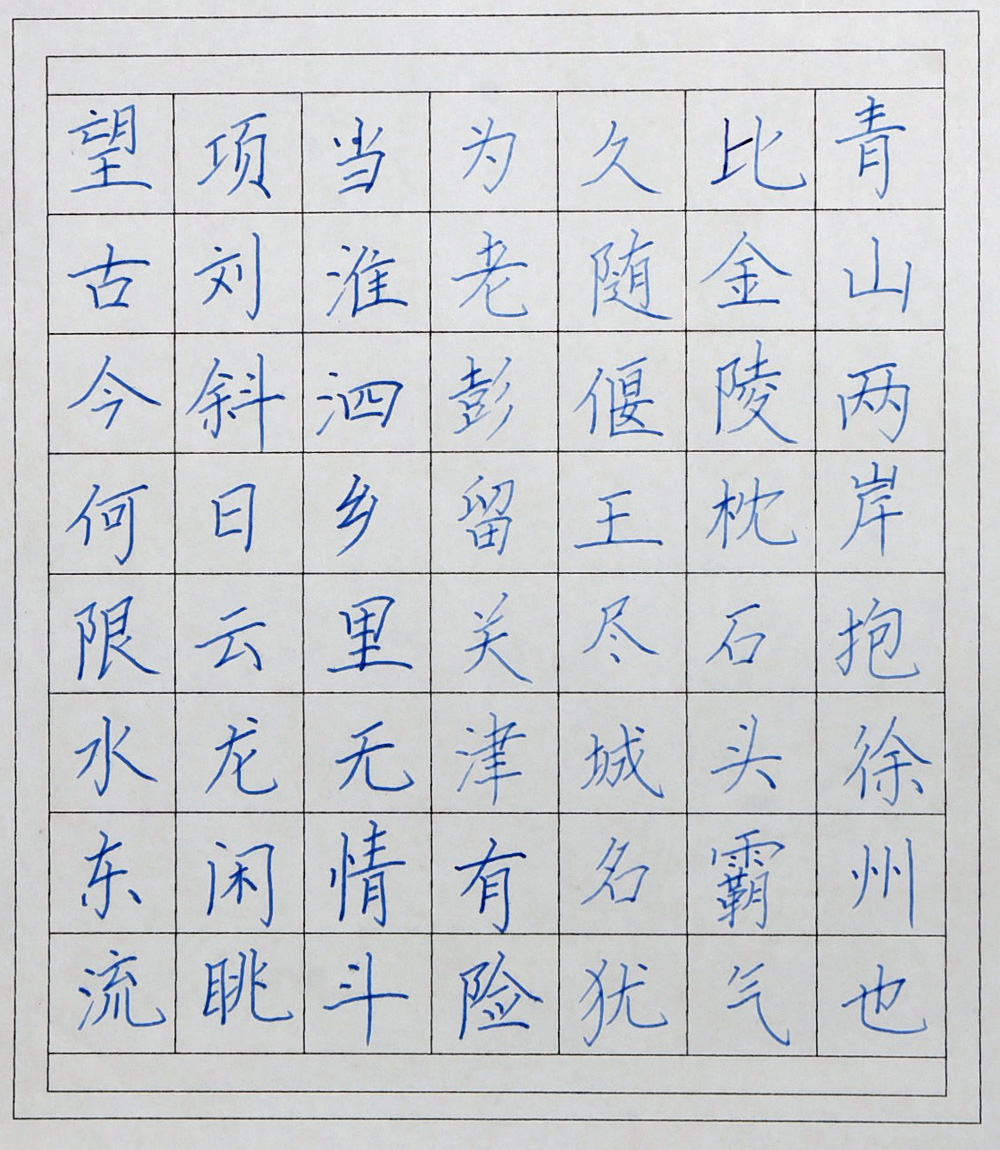 青山两岸抱徐州也
比金陵枕石头霸气
久随偃王尽城名犹
为老彭留关津有险
当淮泗乡里无情斗
项刘斜日云龙闲眺
望古今何限水东流